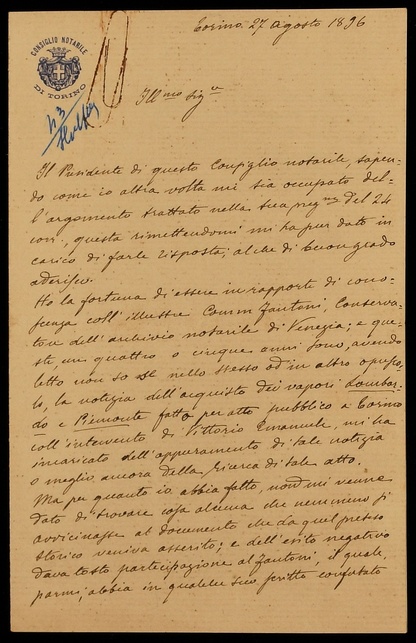 Torino 27 agosto 1896
CONSIGLIO NOTARILE
DI TORINO
Ill.mo Sig.re
Il Presidente di questo Consiglio notarile, sapen-
do come io altra volta mi sia occupato del-
l'argomento trattato nella sua preg.ma del 24
corr., questa rimettendomi mi ha pur dato in
carico di farle risposta; al che di buon grado
aderisco.
Ho la fortuna di essere in rapporto di cono-
scenza coll'illustre Comm Fantoni, Conserva-
tore dell'archivio notarile di Venezia; e que-
sti, un quattro o cinque anni sono, avendo
letto non so se nello stesso od in altro opusco,
lo, la notizia dell'acquisto dei vapori Lombar-
do e Piemonte fatto per atto pubblico a Torino
coll'intervento di Vittorio Emanuele, mi ha
incaricato dell'appuramento di tale notizia
o meglio ancora della ricerca di tale atto.
Ma per quanto io abbia fatto, non mi venne
dato di trovare cosa alcuna che nemmeno si
avvicinasse al documento che da quel preteso
storico veniva asserito; e dell'esito negativo
dava tosto partecipazione al Fantoni, il quale,
parmi, abbia in qualche suo scritto confutato